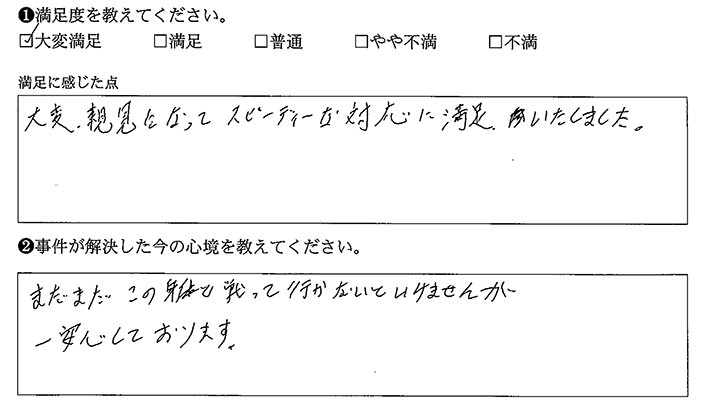 ❶満足度を教えてください。
☑大変満足 □満足 □普通 □やや不満 □不満
満足に感じた点
大変、親見になって スピーディーな対応に満足、いたしました。
❷事件が解決した今の心境を教えてください。
まだまだ この身体と戦って行かないといけませんが
一安心しております。